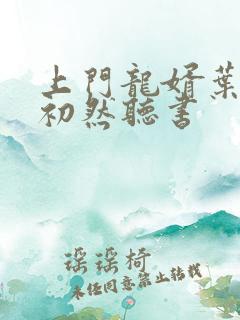 上門龍婿葉
初然聽書
瑶瑶椅
未经同意禁止转载